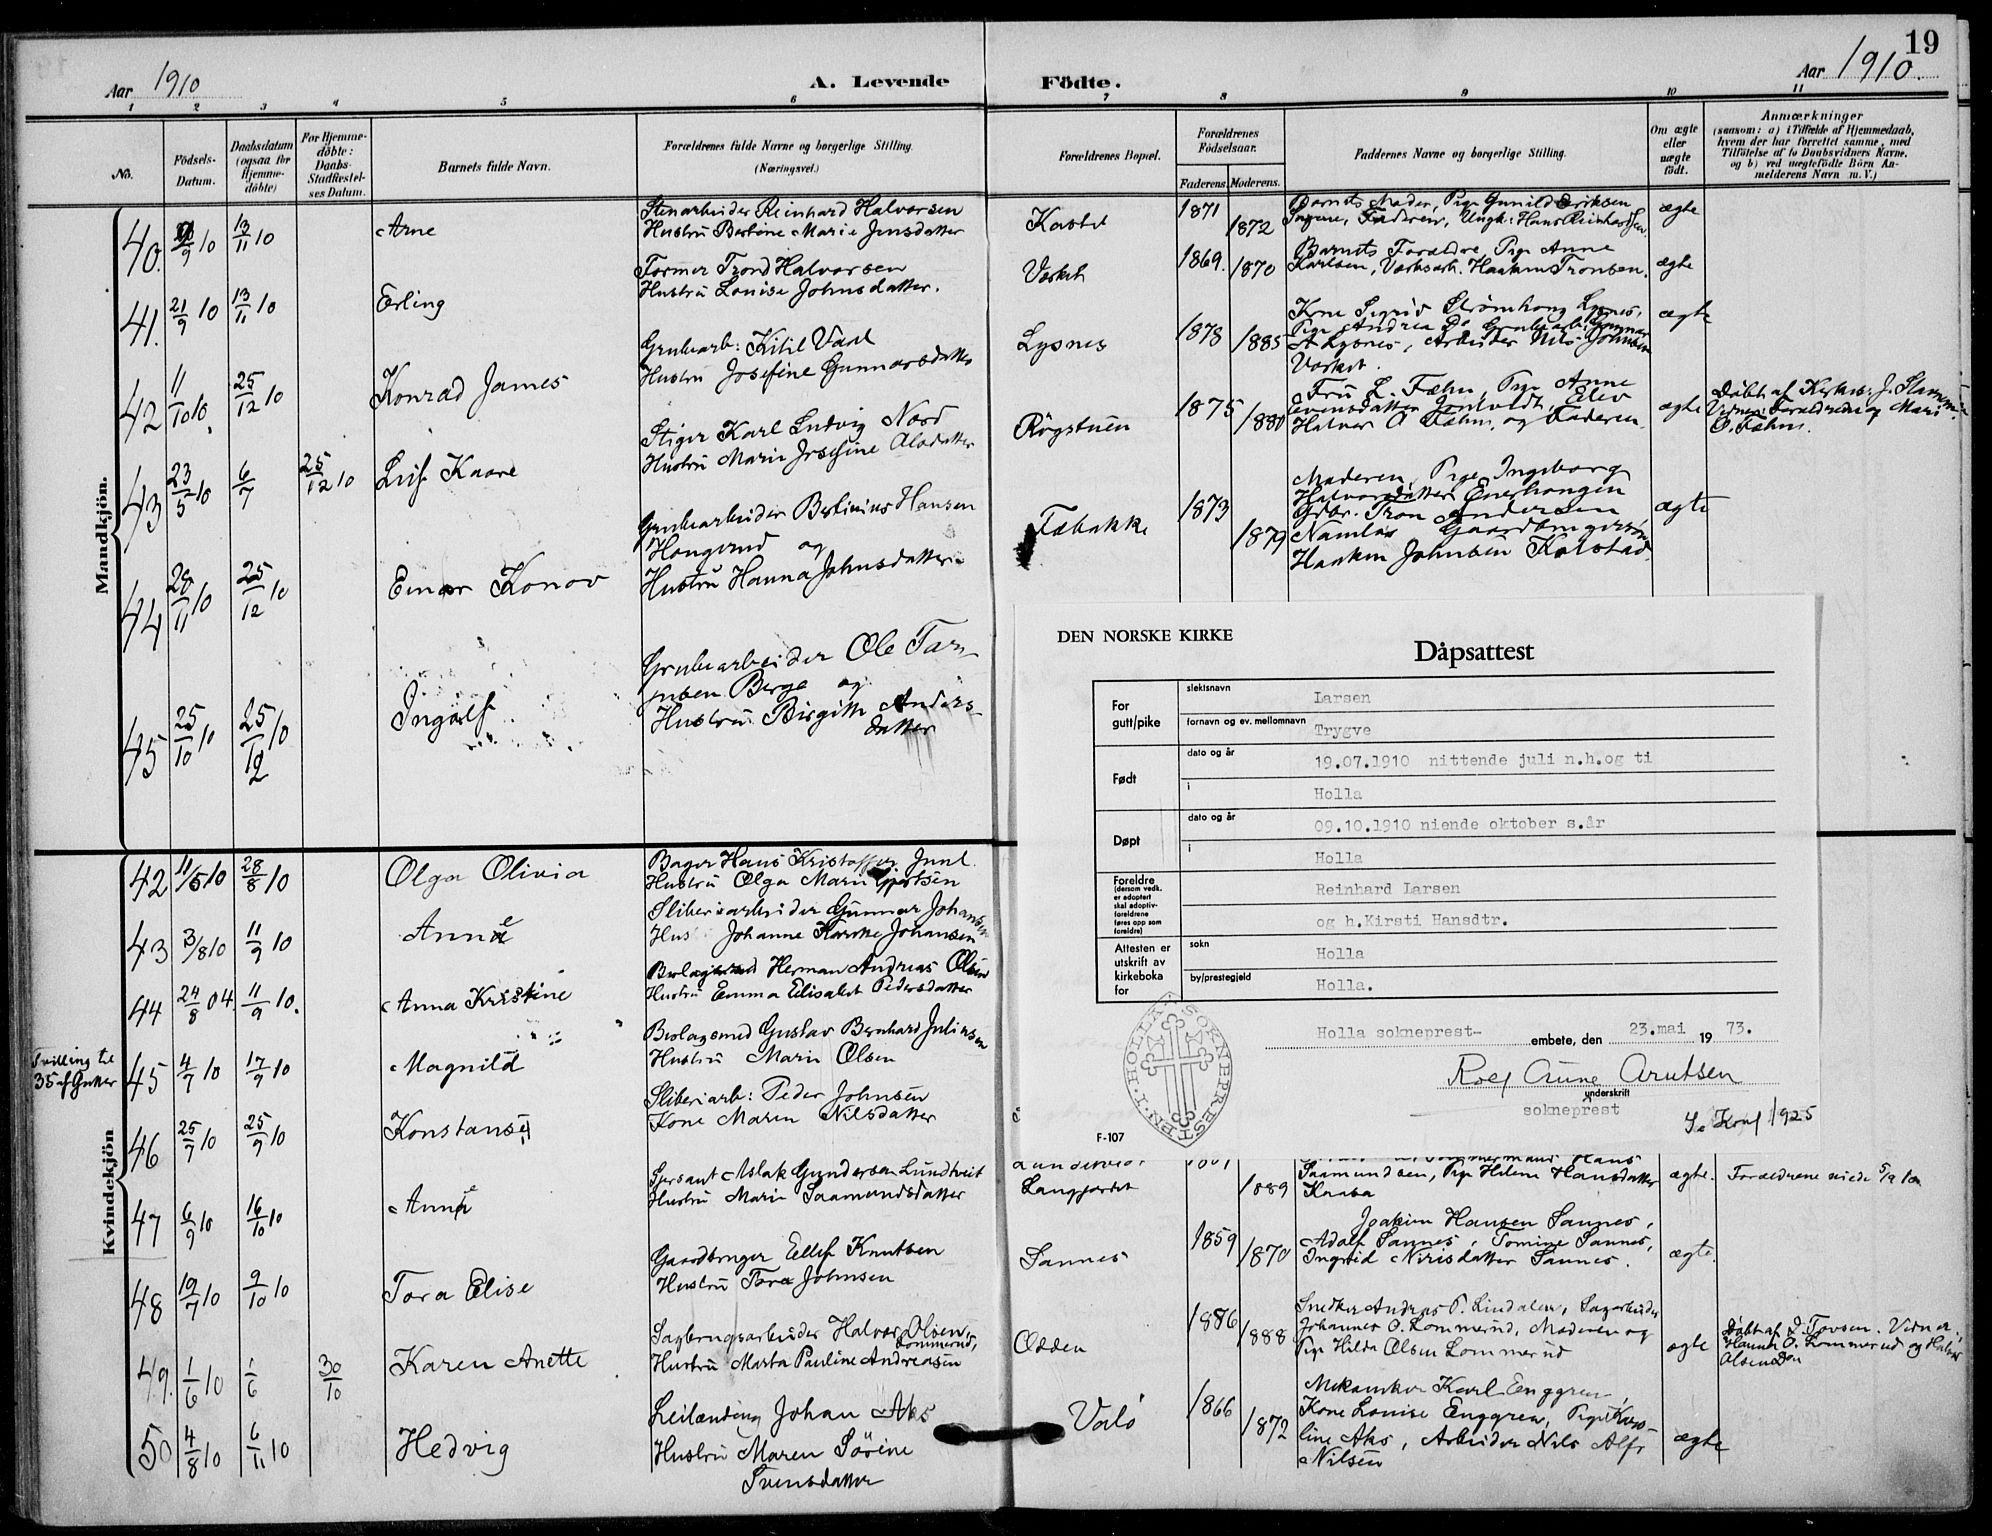 19
Aar 1910
A. Levende Födte.
Aar 1910.
1 2 3 4 5 6 7 8 9 10 11
No.
Födsels-
Datum.
Daabsdatum
(ogsaa for
Hjemme-
döbte)
For Hjemme-
döbte:
Daabs-
Stadfæstel-
ses Datum.
Barnets fulde Navn.
Forældrenes fulde Navne og borgerlige Stilling.
(Næringsvei.)
Forældrenes Bopæl.
Forældrenes
Födselsaar.
Faderens. Moderens.
Faddernes Navne og borgerlige Stilling.
Om ægte
eller
uægte
födt.
Anmærkninger
(saasom: a) i Tilfælde af Hjemmedaab,
hvem der har forrettet samme, med
Tilföielse af to Daabsvidners Navne,
og b) ved uægtefödte Börn An-
melderens Navn m. V.)
Mandkjön.
40. 9/10 13/11 10 Arne
Stenarbeider Reinhard Halvorsen
Hustru Bertine Marie Jensdatter
1871 1872
Barnets Moder, Pige Gunild Eriksen
ægte
41. 21/9 10 13/11 10 Erling
Former Trond Halvorsen
Hustru Louise Johnsdatter.
Værket
1869. 1870
Barnets Forældre, Pige Anne
Karlsen, Værksarb. Haakon Tronsen.
ægte
42 11/10 10. 25/12 10 Konrad James
Grubearb: Kitil Vaal
Hustru Josefine Gunnarsdatter
Lysnes
1878 1885
Kone Sigrid Strømhaug Lysnes,
Pige Andrea Do Grubearb: Gunnar
A Lysnes, Arbeider Nils Johnsen
Værket.
ægte
43 23/5 10 6/7 25/12 10 Leif Kaare
Stiger Karl Ludvig Nord
Hustru Marie Josefine Olsdatter
Røgstuen
1875 1880
Fru L. Fæhn, Pige Anne
Halvor O Fæhn, og Faderen.
ægte
Døbt af Kirkes. J. Stamm.
Vidner: Forældrene og Mari
O. Fæhn.
44 28/11 10 25/12 10 Einar Konov
Grubearbeider Bertinius Hansen
Haugerud og
Hustru Hanna Johnsdatter
Fæbakke
1873 1879
Moderen, Pige Ingeborg
Halvorsdatter Enerhaugen
Gdbr. Tron Andersen
Namløs Gaardbrugersøn
Haakon Johnsen Kolstad
ægte
45 25/10 10 25/12 10 Ingolf
Grubearbeider Ole Tar-
jusen Berge og
Hustru Birgitte Anders-
datter
DEN NORSKE KIRKE
Dåpsattest
For
gutt/pike
slektsnavn
Larsen
fornavn og ev. mellomnavn
Trygve
Født
dato og år
19.07.1910 nittende juli n.h.og ti
i
Holla
Døpt
dato og år
09.10.1910 niende oktober s.år
i
Holla
Foreldre
(dersom vedk.
er adoptert
skal adoptiv-
foreldrene
føres opp som
foreldre)
Reinhard Larsen
og h.Kirsti Hansdtr.
Attesten er
utskrift av
kirkeboka
for
sokn
Holla
by/prestegjeld
Holla.
Holla sokneprest- embete, den 23.mai 19 73.
Rolf Aune Arntsen
underskrift
sokneprest
Se Konf 1925
F-107
SOKNEPRESTEN I HOLLA
Kvindekjön
42 11/5 10 28/8 10 Olga Olivia
Bager Hans Kristoffer Juul
Hustru Olga Marie Gjertsen
43 3/8 10 11/9 10 Anne
Sliberiarbeider Gunnar Johansen
Hus Johanne Johansen
44 24/8 04. 11/9 10. Anna Kristine
Herman Andreas Olsen
Hustru Emma Elisabet Pedersdatter
Tvilling til
35 af Gutter
45 4/7 10 17/9 10 Magnild
Beslagsmed Gustav Bernhard Juliusen
Hustru Marie Olsen
46 25/7 10 25/9 10 Konstanse
Sliberiarb: Peder Johnsen
Kone Maren Nilsdatter
47 6/9 10 16/10 10 Anne
Sersant Aslak Gundersen Lundtveit
Hustru Marie Saamundsdatter
Langfjordet
1889
Saamundsen, Pige Helene Hansdatter
Kaasa
ægte.
Forældrene viede
48 19/7 10 9/10 10 Tora Elise
Gaardbruger Ellef Knutsen
Hustru Tora Johnsen
Sannes
1859 1870
Joakim Hansen Sannes,
Adolf Sannes, Tomine Sannes,
Ingrid Nirisdatter Sannes.
ægte
49. 1/6 10 1/6 30/10 Karen Anette
Sagbrugsarbeider Halvor Olsen
Lommerud,
Hustru Marta Pauline Andreasen
Odden
1886 1888
Snedker Andreas P. Lindalen, Sagarbeider
Johannes O. Lommerud, Moderen og
Pige Hilda Olsen Lommerud
ægte
Døbt af J. Tovsen. Vidner,
Hanna O. Lommerud og Halvor
Olsen Do
50 4/8 10 6/11 10 Hedvig
Leilænding Johan Aks
Hustru Maren Sörine
Svensdatter
Valö
1866 1872
Mekaniker Karl Enggren,
Kone Louise Enggren, Pige Karo-
line Aks, Arbeider Nils Alfr
Nilsen
ægte